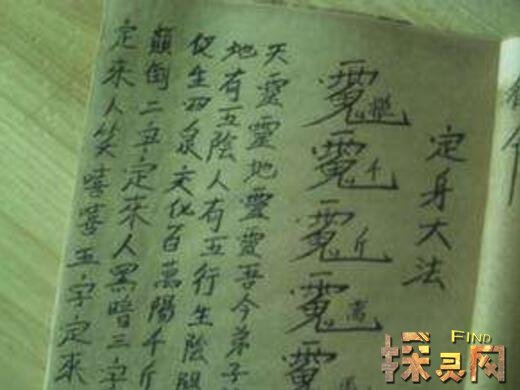 定身大法
千
斤
萬
天靈靈地靈靈吾今弟子
地有五陰人有五行生陰陽
促生四泉文化百萬陽千斤
顛倒二字定來人黑暗三字
定來人笑嘻嘻五字定來
FIND
探灵网